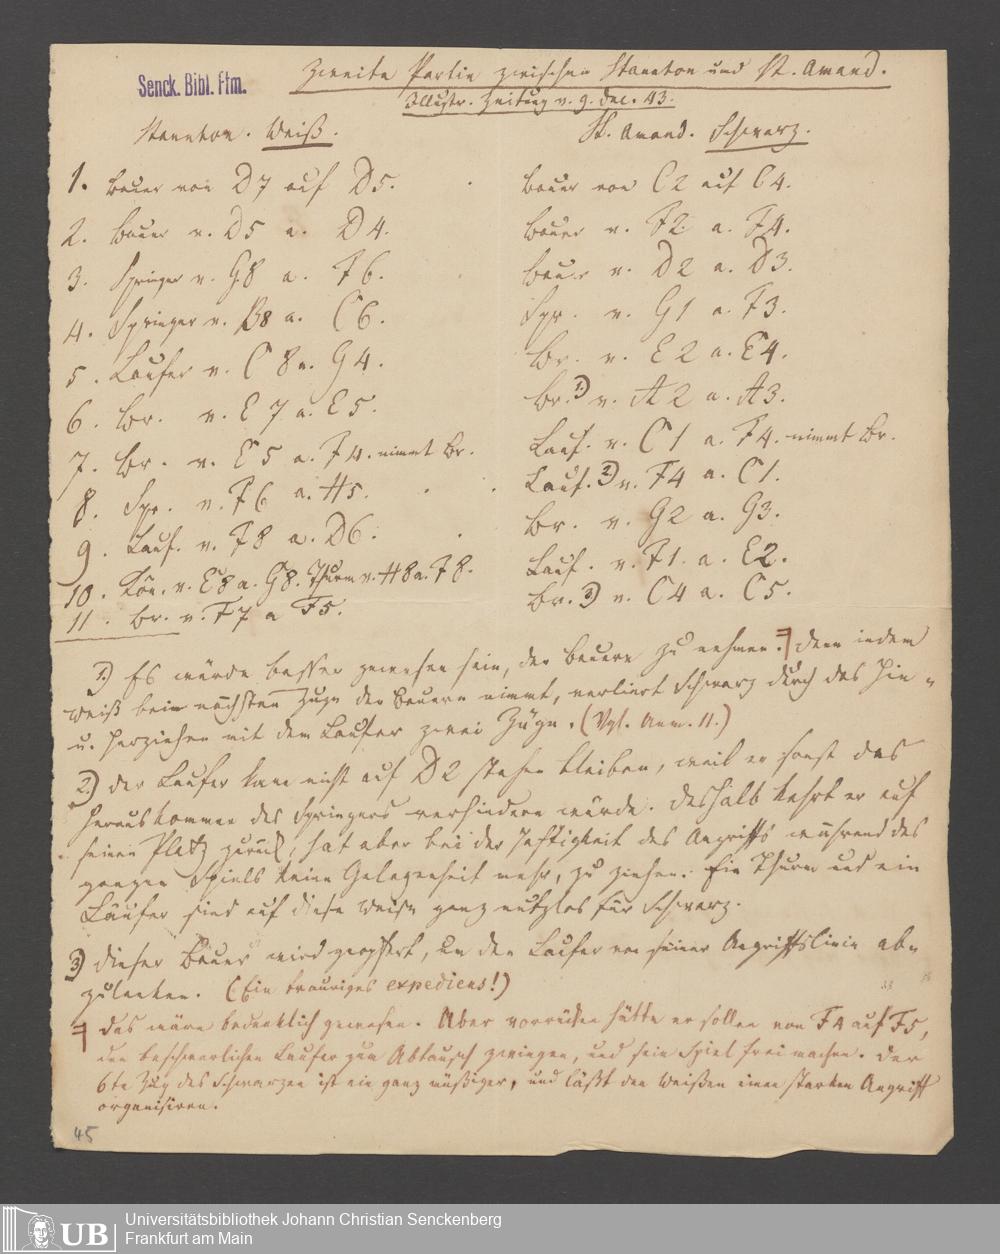 Senck. Bibl. Ffm.
Zweite Partie zwischen Staunton und St. Amand.
Illustr. Zeitung v. 9. Dec. 43.
Staunton. Weiß.
St. Amand. Schwarz.
1. Bauer von D7 auf D5. Bauer von C2 auf C4.
2. Bauer v. D5 a. D4. Bauer v. F2 a. F4.
3. Springer v. G8 a. F6. Bauer v. D2 a. D3.
4. Springer v. B8 a. C6. Spr. v. G1 a. F3.
5. Laufer v. C8 a. G4. Br. v. E2 a. E4.
6. Br. v. E7 a. E5. Br. 1) v. A2 a. A3.
7. Br. v. E5 a. F4. nimmt Br. Lauf. v. C1 a. F4. nimmt Br.
8. Spr. v. F6 a. H5. Lauf. 2) v. F4 a. C1.
9. Lauf. v. F8 a. D6. Br. v. G2 a. G3.
10. Kön. v. E8 a. G8. Thurm v. H8 a. F8. Lauf. v. F1. a. E2.
11. Br. v. F7 a F5. Br. 3) v. C4 a. C5.
1) Es würde besser gewesen sein, den Bauern zu nehmen. denn indem
Weiß beim nächsten Zuge den Bauern nimmt, verliert Schwarz durch das Hin-
u. Herziehen mit dem Laufer zwei Züge. (Vgl. Anm. 11.)
2) Der Laufer kann nicht auf D2 stehen bleiben, weil er sonst das
Herauskommen des Springers verhindern würde. Deshalb kehrt er auf
seinen Platz zurück, hat aber bei der Heftigkeit des Angriffs während des
ganzen Spiels keine Gelegenheit mehr, zu ziehen. Ein Thurm und ein
Läufer sind auf diese Weise ganz nutzlos für Schwarz.
3) Dieser Bauer wird geopfert, um den Laufer von seiner Angriffslinie ab-
zulenken. (Ein trauriges expediens!)
das wäre bedenklich gewesen. Aber vorrücken hätte er sollen von F4 auf F5,
den beschwerlichen Laufer zum Abtausch zwingen, und sein Spiel frei machen. Der
6te Zug des Schwarzen ist ein ganz müßiger, und läßt den Weißen einen starken Angriff
organisiren.
45
UB
Universitätsbibliothek Johann Christian Senckenberg
Frankfurt am Main